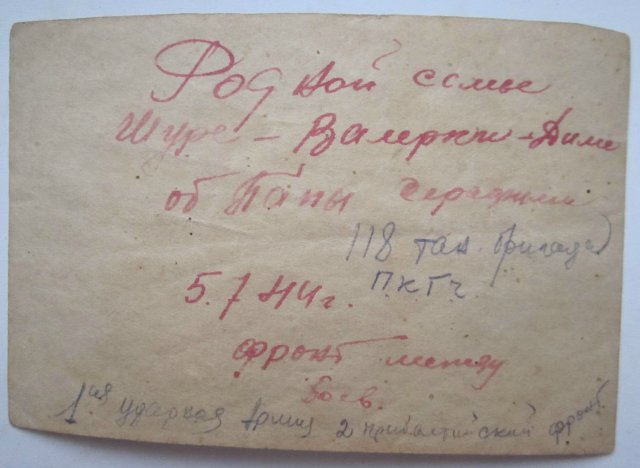 Родной семье
Шуре - Валерки - Диме
об Папы
118 тан. бригада
5.7 44 г.
фронт между
боев.
1ая ударная Армия 2 прибалтийский фронт